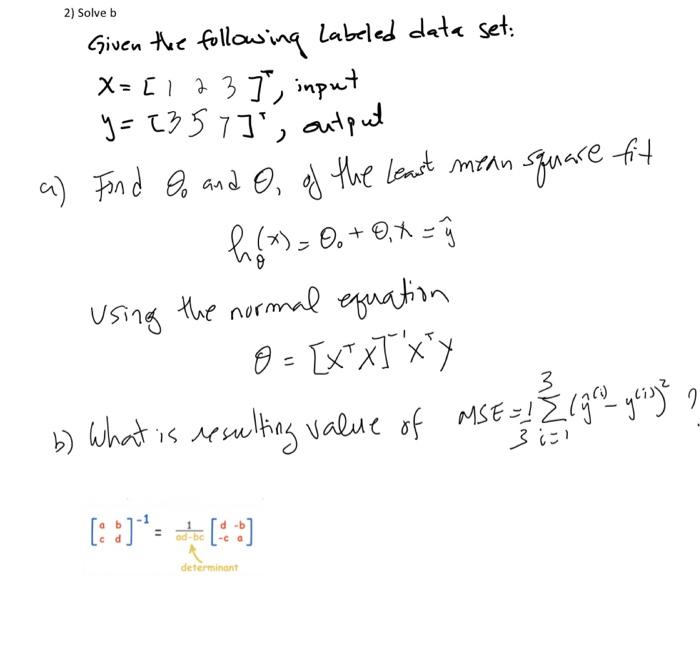 2) Solve b
Given the following Labeled data set:
X = [1 2 3]ᵀ, input
y = [3 5 7]ᵀ, output
a) Find θ₀ and θ₁ of the least mean square fit
h_θ(x) = θ₀ + θ₁x = ŷ
Using the normal equation
θ = [XᵀX]⁻¹XᵀY
b) What is resulting value of MSE = 1/3 Σ_{i=1}^{3} (ŷ⁽ⁱ⁾ - y⁽ⁱ⁾)² ?
[a b; c d]⁻¹ = 1/(ad-bc) [d -b; -c a]
determinant